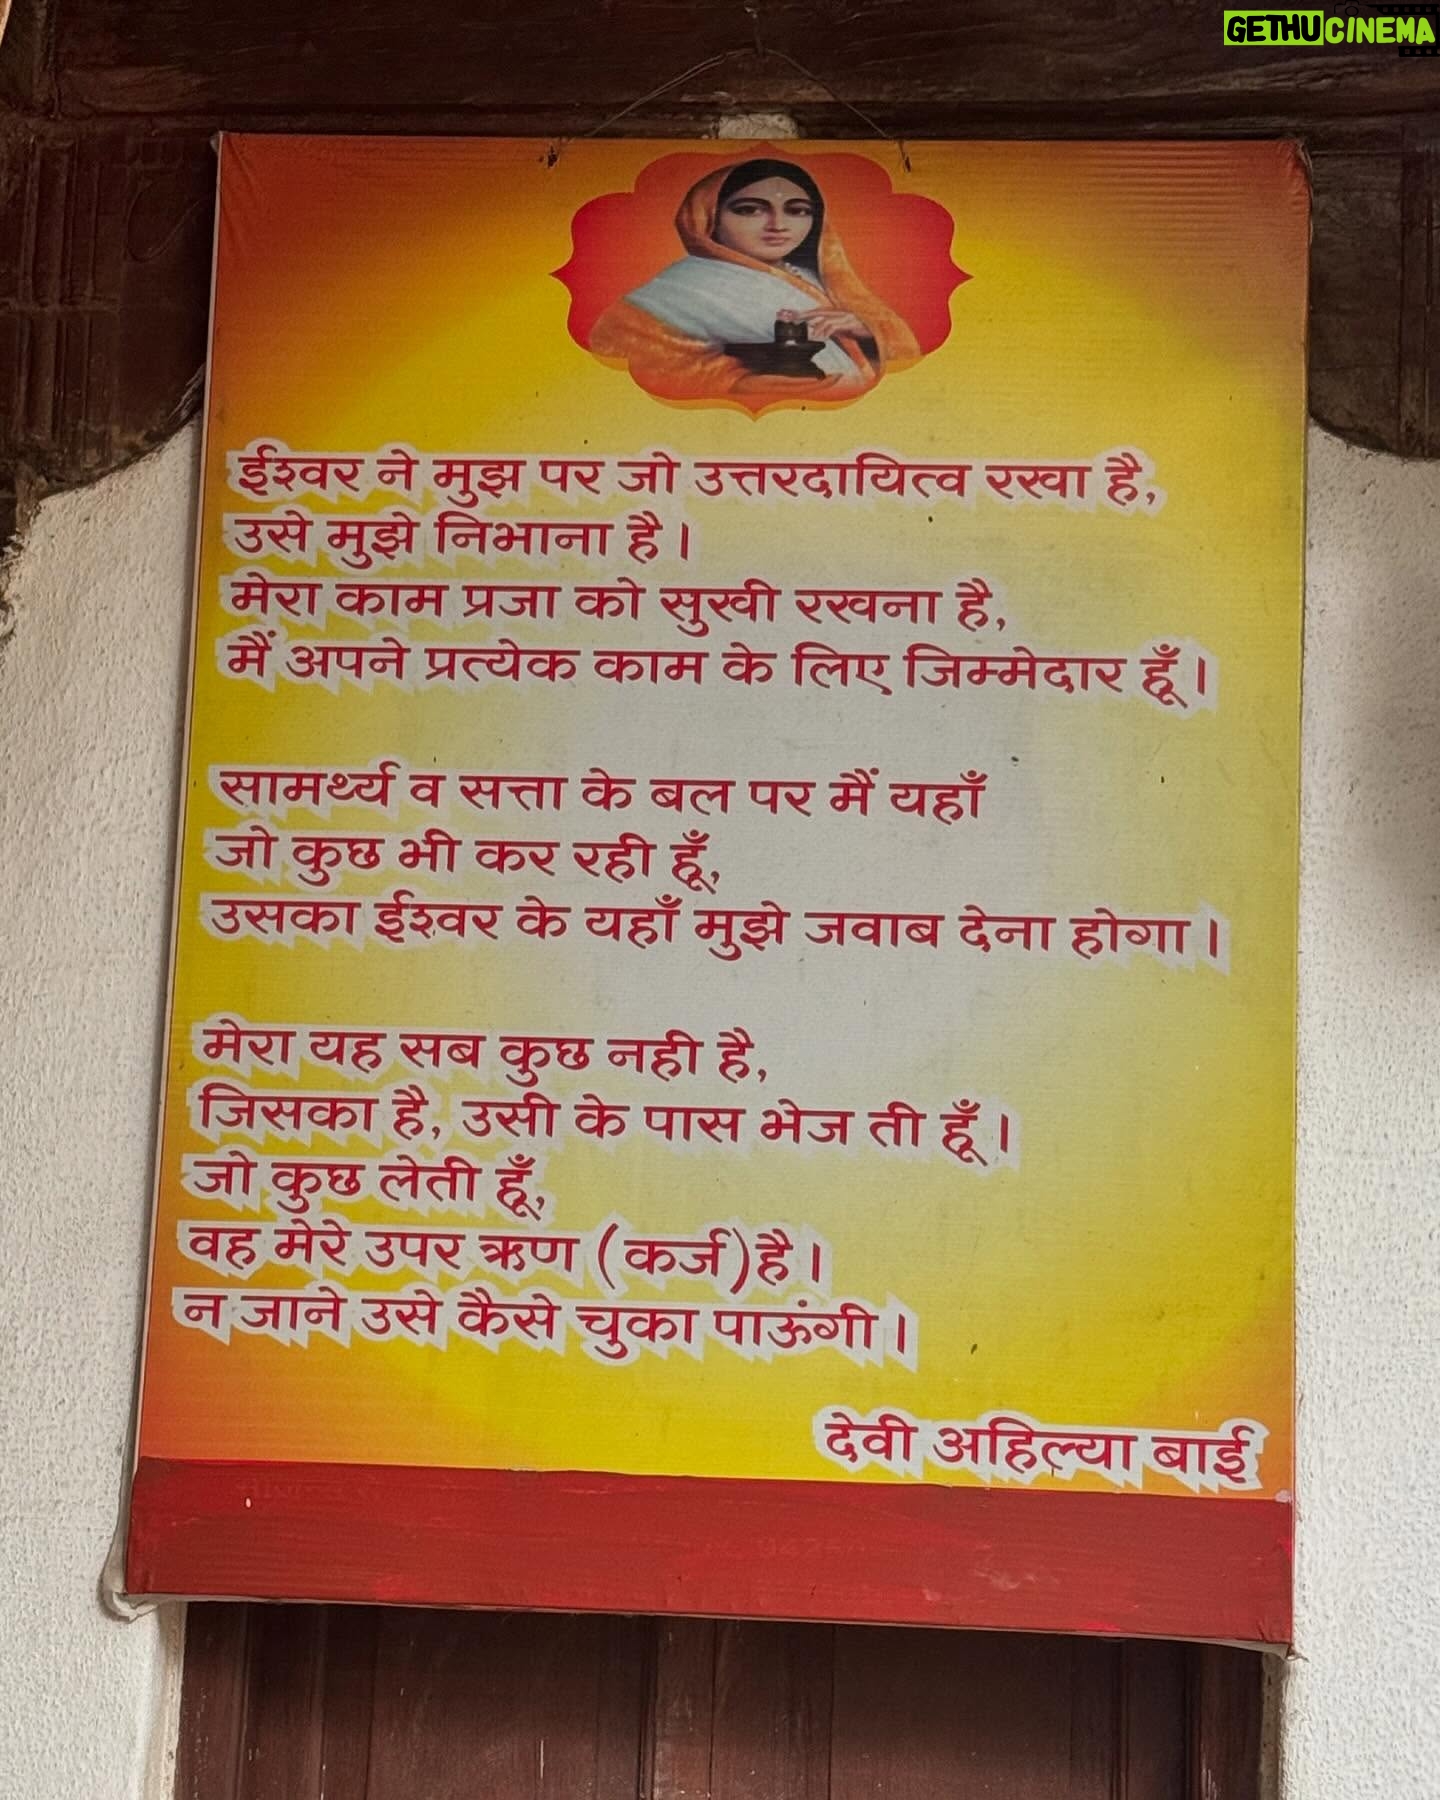 GETHUCINEMA
ईश्वर ने मुझ पर जो उत्तरदायित्व रखा है,
उसे मुझे निभाना है।
मेरा काम प्रजा को सुखी रखना है,
मैं अपने प्रत्येक काम के लिए जिम्मेदार हूँ।
सामर्थ्य व सत्ता के बल पर मैं यहाँ
जो कुछ भी कर रही हूँ,
उसका ईश्वर के यहाँ मुझे जवाब देना होगा।
मेरा यह सब कुछ नही है,
जिसका है, उसी के पास भेज ती हूँ।
जो कुछ लेती हूँ,
वह मेरे उपर ऋण (कर्ज) है।
न जाने उसे कैसे चुका पाऊंगी।
देवी अहिल्या बाई